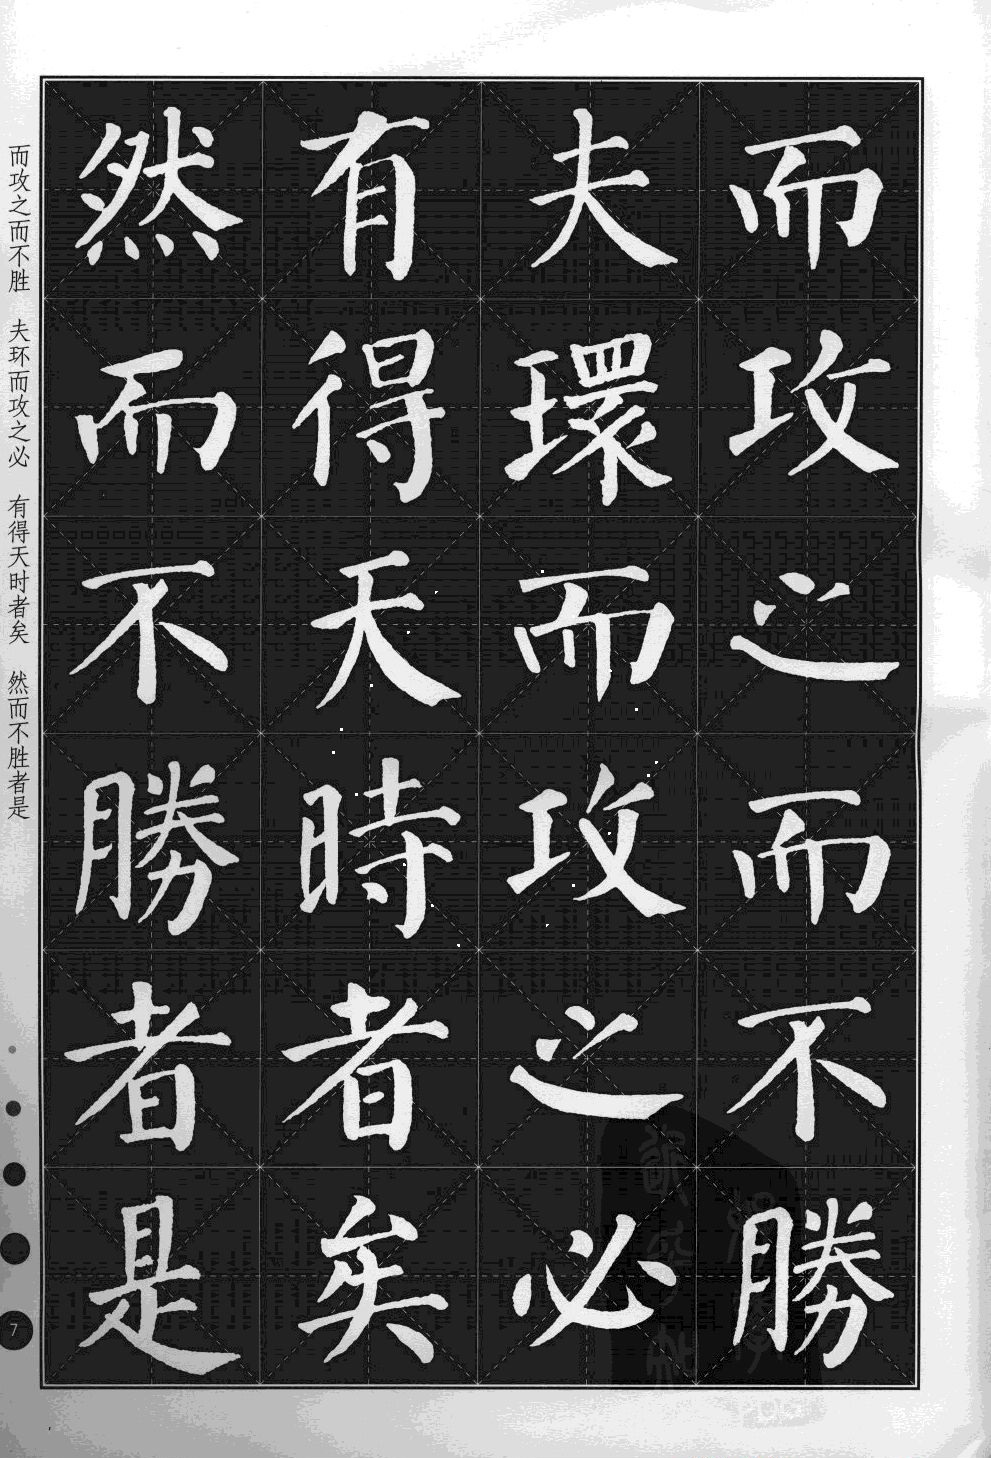 而攻之而不勝
夫環而攻之必
有得天時者矣
然而不勝者是
而攻之而不胜 夫环而攻之必 有得天时者矣 然而不胜者是
7